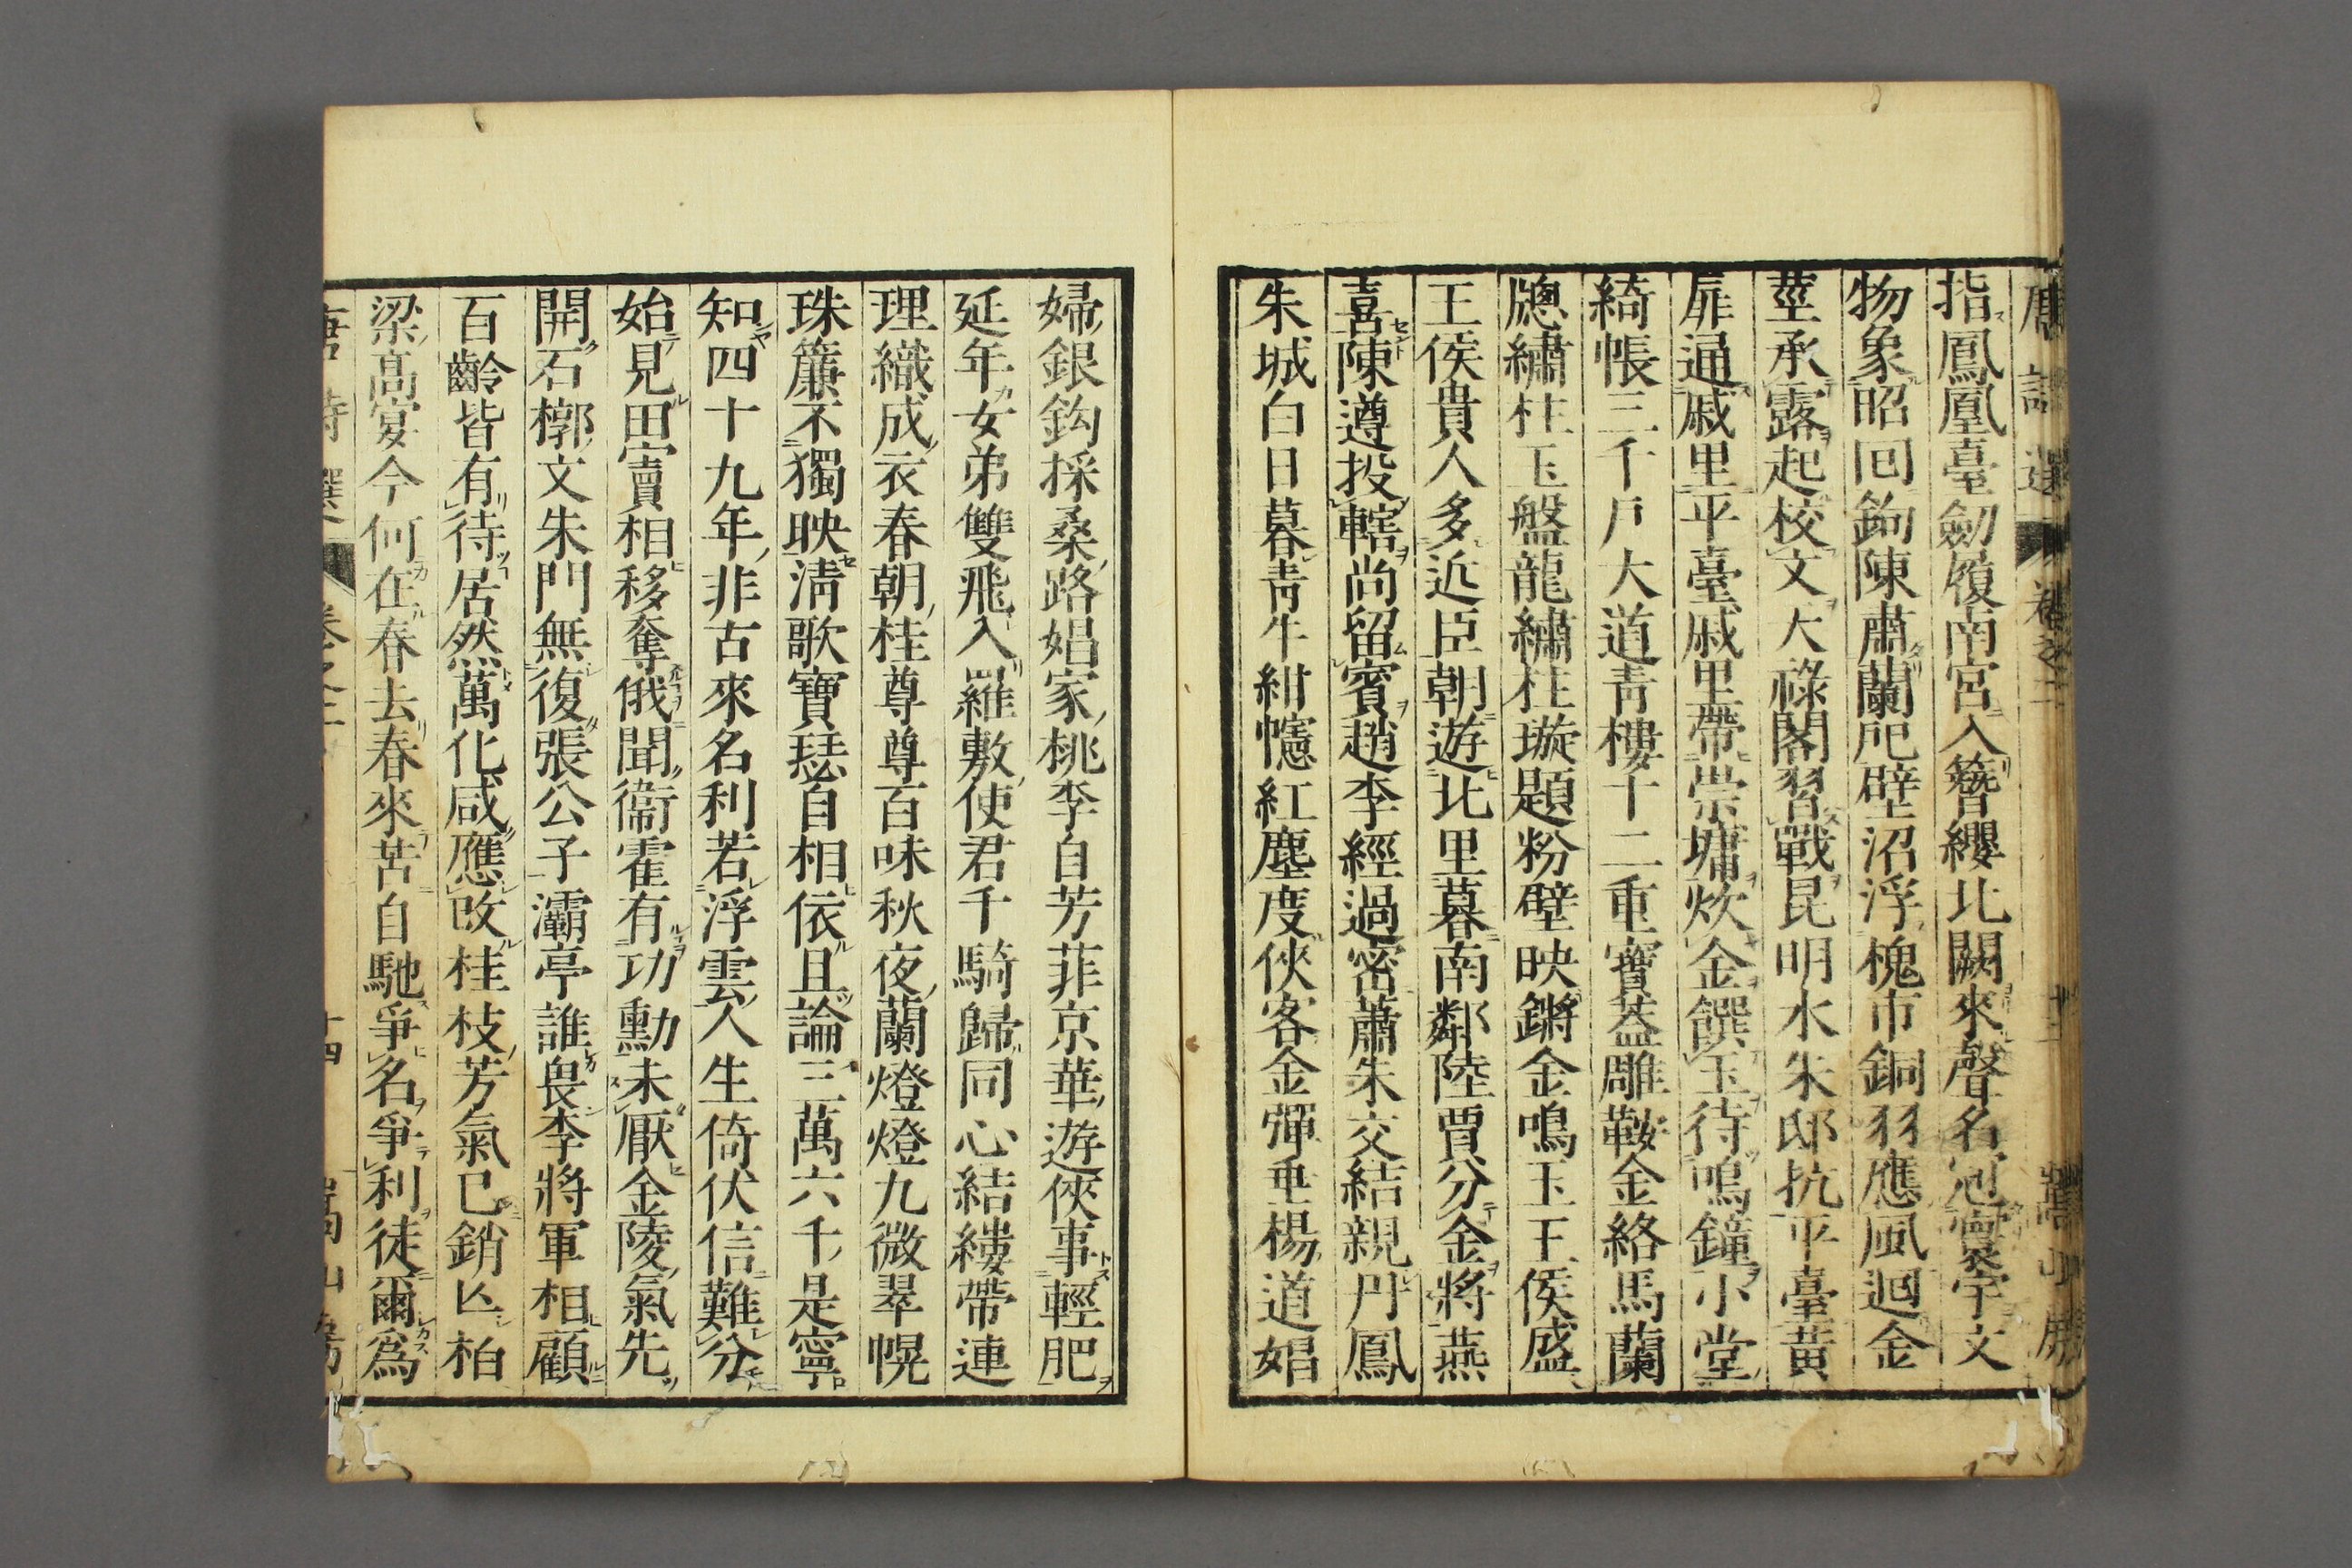 唐詩選 卷之二 十三 嵩山房
指鳳凰臺劒履南宮入簪纓北闕來聲名冠寰宇文
物象昭回鉤陳肅蘭戺壁沼浮槐市銅羽應風迴金
莖承露起校文天祿閣習戰昆明水朱邸抗平臺黄
扉通戚里平臺戚里帶崇墉炊金饌玉待鳴鐘小堂
綺帳三千戶大道靑樓十二重寶葢雕鞍金絡馬蘭
牕繡柱玉盤龍繡柱璇題粉壁映鏘金鳴玉王侯盛
王侯貴人多近臣朝遊北里暮南鄰陸賈分金將燕
喜陳遵投轄尚留賓趙李經過密蕭朱交結親丹鳳
朱城白日暮靑牛紺幰紅塵度俠客金彈垂楊道娼
婦銀鈎採桑路娼家桃李自芳菲京華遊俠事輕肥
延年女弟雙飛入羅敷使君千騎歸同心結縷帶連
理織成衣春朝桂尊尊百味秋夜蘭燈燈九微翠幌
珠簾不獨映淸歌寶瑟自相依且論三萬六千是寧
知四十九年非古來名利若浮雲人生倚伏信難分
始見田竇相移奪俄聞衞霍有功勳未厭金陵氣先
開石槨文朱門無復張公子灞亭誰畏李將軍相顧
百齡皆有待居然萬化咸應改桂枝芳氣已銷亾柏
梁高宴今何在春去春來苦自馳爭名爭利徒爾爲
唐詩選 卷之二 十四 嵩山房